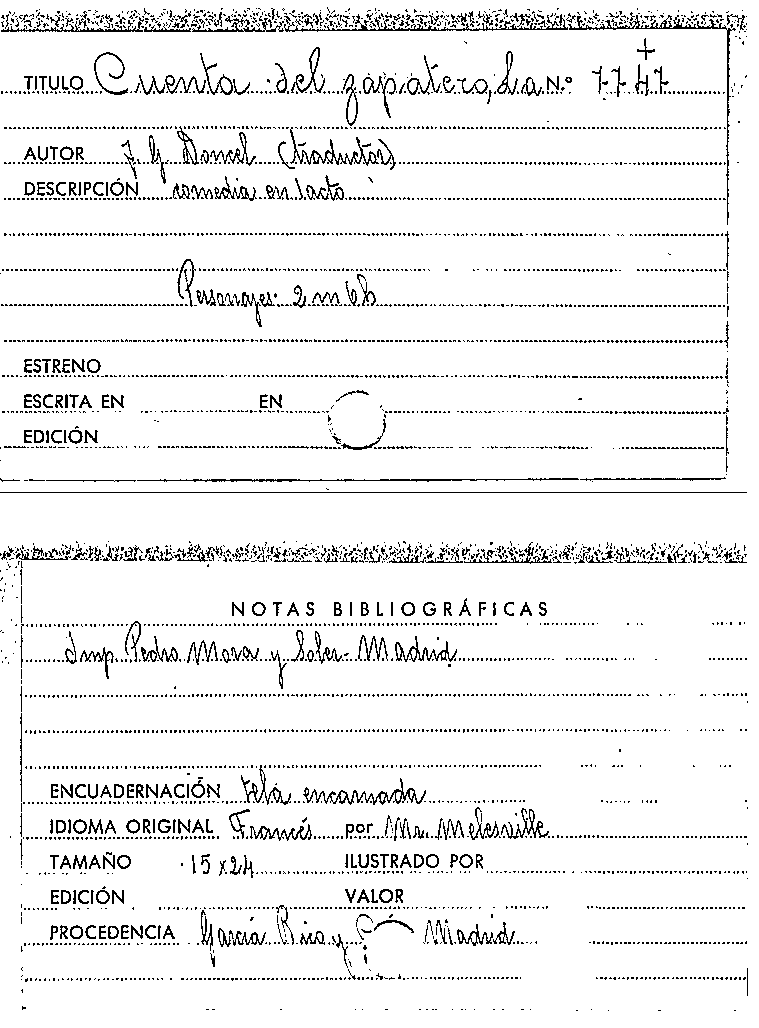 +
TITULO Cuenta del zapatero, La N.º 7747
AUTOR J. G. Doncel (traductor)
DESCRIPCIÓN comedia en 1 acto
Personajes: 2 m 6 h
ESTRENO
ESCRITA EN EN
EDICIÓN
NOTAS BIBLIOGRÁFICAS
Imp. Pedro Mora y Soler - Madrid
ENCUADERNACIÓN tela encarnada
IDIOMA ORIGINAL Francés por Mr. Melesville
TAMAÑO 15 x 24 ILUSTRADO POR
EDICIÓN VALOR
PROCEDENCIA García Rico y Madrid